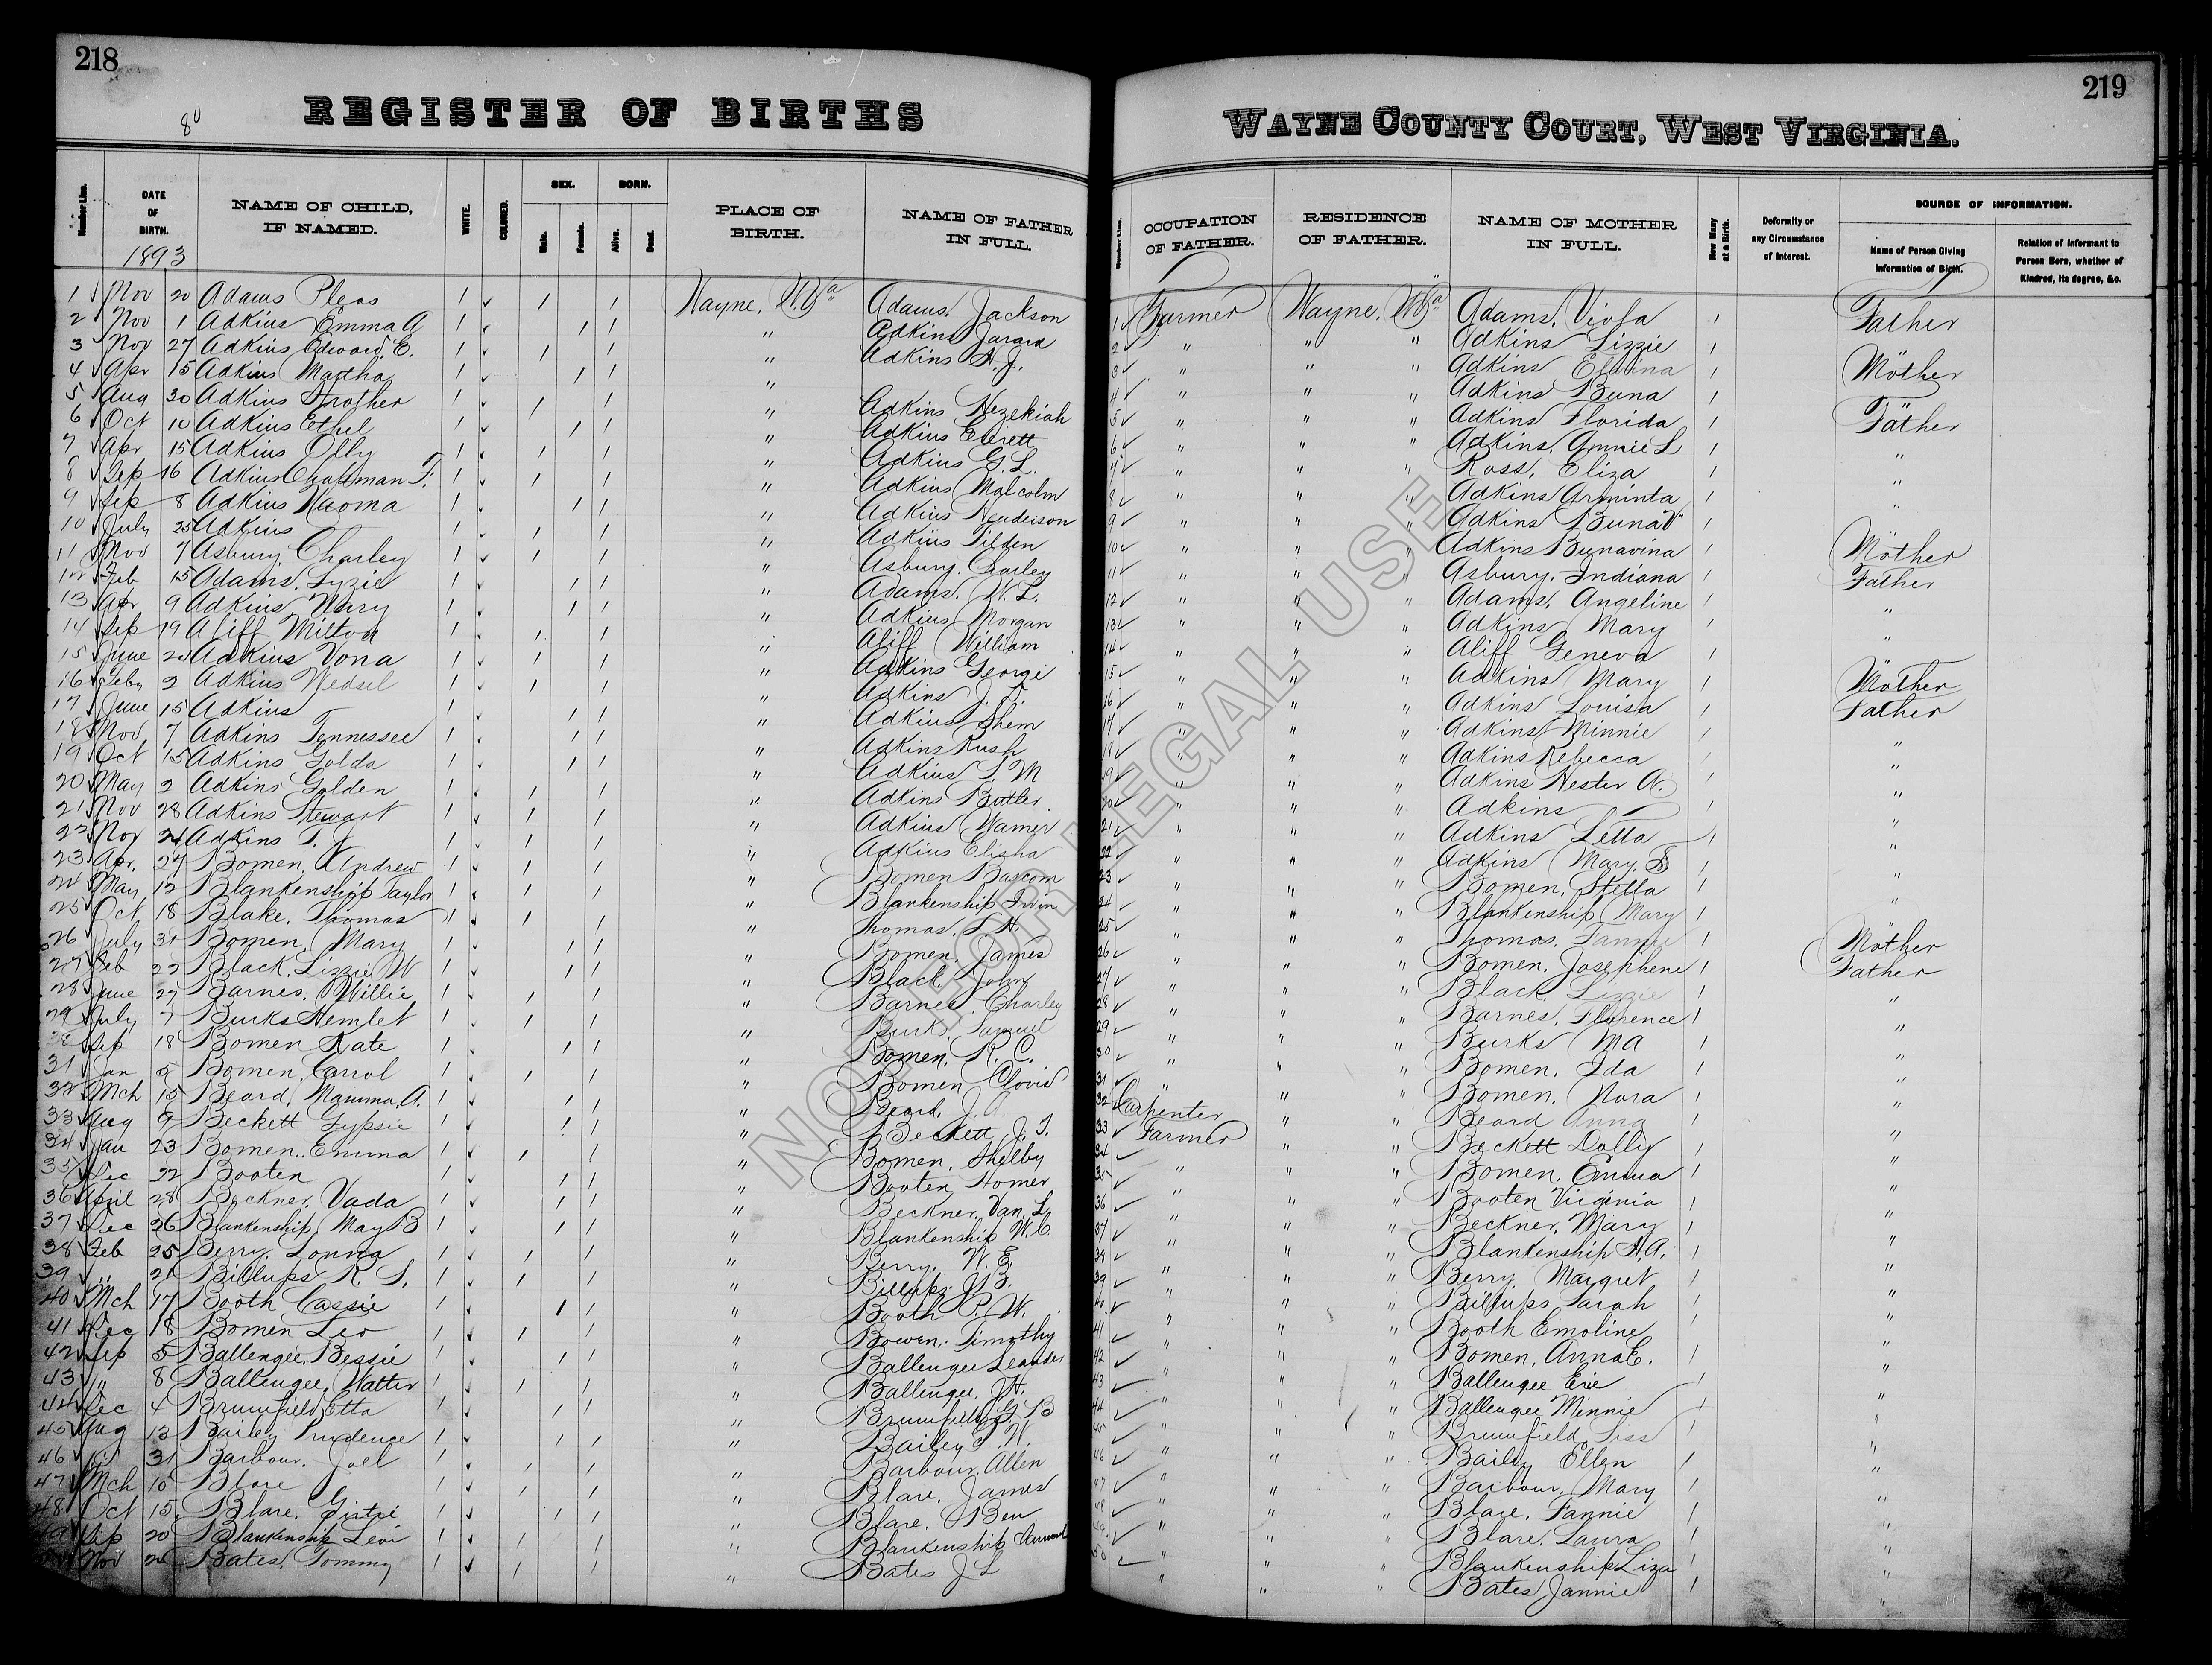 218
80
REGISTER OF BIRTHS
Number Line.
DATE OF BIRTH.
1893
NAME OF CHILD, IF NAMED.
WHITE.
COLORED.
SEX.
Male.
Female.
BORN.
Alive.
Dead.
PLACE OF BIRTH.
NAME OF FATHER IN FULL.
1 Nov 20 Adams Pleas Wayne, W.Va Adams, Jackson
2 Nov 1 Adkins Emma A " Adkins Jarard
3 Nov 27 Adkins Edward E. " Adkins A. J.
4 Apr 15 Adkins Martha "
5 Aug 30 Adkins Strother " Adkins Hezekiah
6 Oct 10 Adkins Ethel " Adkins Everett
7 Apr 15 Adkins Olly " Adkins G. L.
8 Sep 16 Adkins Chapman F. " Adkins Malcolm
9 Sep 8 Adkins Naoma " Adkins Henderson
10 July 25 Adkins " Adkins Tilden
11 Nov 7 Asbury, Charley " Asbury, Charley
12 Feb 15 Adams, Lyzie " Adams, W. L.
13 Apr 9 Adkins Mary " Adkins Morgan
14 Sep 19 Aliff Milton " Aliff William
15 June 20 Adkins Vona " Adkins George
16 Feby 2 Adkins Wedsel " Adkins J. T.
17 June 15 Adkins " Adkins Shem
18 Nov 7 Adkins Tennessee " Adkins Rush
19 Oct 15 Adkins Golda " Adkins S. M
20 May 2 Adkins Golden " Adkins Butler
21 Nov 28 Adkins Stewart " Adkins Warner
22 Nov 21 Adkins T. J. " Adkins Elisha
23 Apr. 27 Bomen, Andrew " Bomen Bascom
24 May 12 Blankenship Taylor " Blankenship Irvin
25 Oct 18 Blake, Thomas " Thomas, L. H.
26 July 31 Bomen, Mary " Bomen, James
27 Feb 22 Black, Lizzie W " Black, John
28 June 27 Barnes, Willie " Barnes, Charley
29 July 7 Burks Hemlet " Burks, Samuel
30 Sep 18 Bomen Kate " Bomen, R. C.
31 Jan 5 Bomen, Carrol " Bomen Clovis
32 Mch 15 Beard, Mamma, A. " Beard, J. A
33 Aug 9 Beckett Gypsie " Beckett J. T.
34 Jan 23 Bomen, Emma " Bomen, Shelby
35 Dec 22 Booten " Booten Homer
36 April 28 Beckner, Vada " Beckner, Van, L.
37 Dec 26 Blankenship May B " Blankenship W. C.
38 Feb 25 Berry, Lonna " Berry, W. E.
39 " 21 Billups R. S. " Billups J. B.
40 Mch 17 Booth Cassie " Booth P. W.
41 Dec 18 Bomen Leo " Bowen, Timothy
42 Sep 5 Ballengee, Bessie " Ballengee Leander
43 " 8 Ballengee, Walter " Ballengee, J. H.
44 Dec 4 Brumfield Etta " Brumfield G. B
45 Aug 13 Bailey Prudence " Bailey T. W.
46 31 Barbour, Joel " Barbour, Allen
47 Mch 10 Blare " Blare, James
48 Oct 15 Blare, Girtie " Blare, Ben
49 Sep 20 Blankenship Levi " Blankenship
Nov 20 Bates, Tommy " Bates J L
219
WAYNE COUNTY COURT, WEST VIRGINIA.
Number Line.
OCCUPATION OF FATHER.
RESIDENCE OF FATHER.
NAME OF MOTHER IN FULL.
How Many at a Birth.
Deformity or any Circumstance of Interest.
SOURCE OF INFORMATION.
Name of Person Giving Information of Birth.
Relation of Informant to Person Born, whether of Kindred, its degree, &c.
1 Farmer Wayne, W.Va Adams, Viola 1 Father
2 " " " Adkins Lizzie 1
3 " " " Adkins Elvina 1 Mother
4 " " " Adkins Buna 1
5 " " " Adkins Florida 1 Father
6 " " " Adkins, Annie L 1 "
7 " " " Ross, Eliza 1 "
8 " " " Adkins Arminta 1 "
9 " " " Adkins Buna V 1
10 " " " Adkins Bunavina 1 Mother
11 " " " Asbury, Indiana 1 Father
12 " " " Adams, Angeline 1 "
13 " " " Adkins Mary 1 "
14 " " " Aliff Geneva 1
15 " " " Adkins Mary 1 Mother
16 " " " Adkins Louisa 1 Father
17 " " " Adkins Minnie 1 "
18 " " " Adkins Rebecca 1 "
19 " " " Adkins Hester A. 1 "
20 " " " Adkins 1 "
21 " " " Adkins Letta 1 "
22 " " " Adkins Mary, 1
23 " " " Bomen, Stella 1 "
24 " " " Blankenship Mary 1
25 " " " Thomas, Fannie 1 Mother
26 " " " Bomen, Josephene 1 Father
27 " " " Black, Lizzie 1 "
28 " " " Barnes, Florence 1 "
29 " " " Burks MA 1
30 " " " Bomen, Ida 1 "
31 " " " Bomen, Nora 1 "
32 Carpenter " " Beard Anna 1 "
33 Farmer " " Beckett Dolly 1 "
34 " " " Bomen, Emma 1 "
35 " " " Booten Virginia 1 "
36 " " " Beckner, Mary 1 "
37 " " " Blankenship H. A. 1 "
38 " " " Berry, Margret 1 "
39 " " " Billups Sarah 1 "
40 " " " Booth Emoline 1 "
41 " " " Bomen, Anna E. 1 "
42 " " " Ballengee Erie 1 "
43 " " " Ballengee Minnie 1 "
44 " " " Brumfield, Siss 1 "
45 " " " Baily Ellen 1 "
46 " " " Barbour, Mary 1 "
47 " " " Blare, Fannie 1 "
48 " " " Blare, Laura 1 "
" " " Blankenship Liza 1 "
50 " " " Bates Jannie 1 "
NOT FOR LEGAL USE